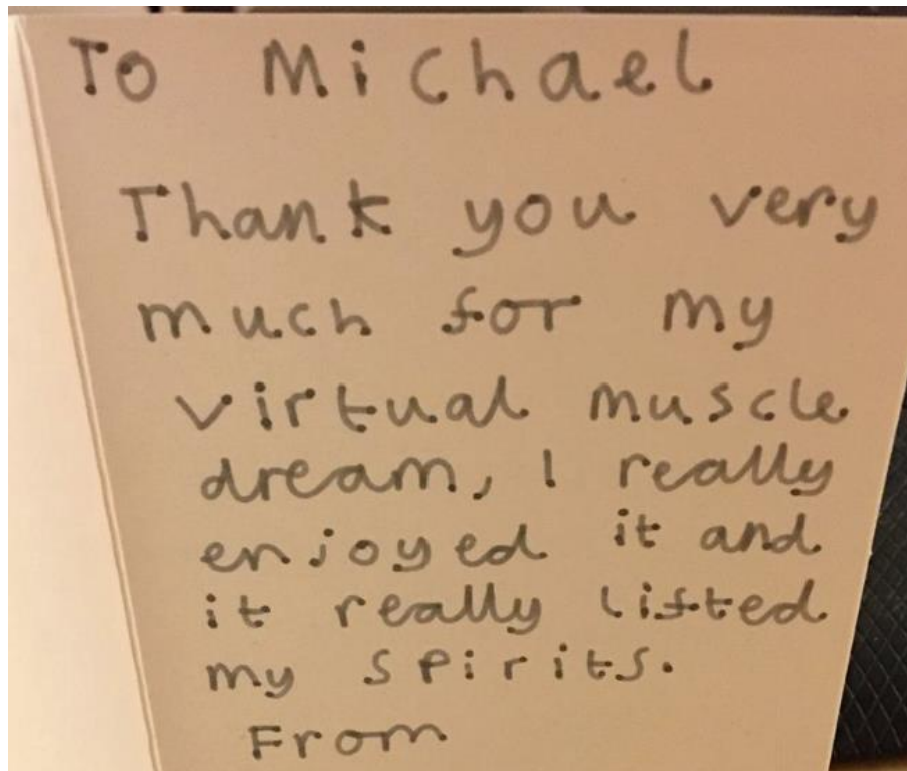 To Michael
Thank you very
much for my
virtual muscle
dream, I really
enjoyed it and
it really lifted
my spirits.
From